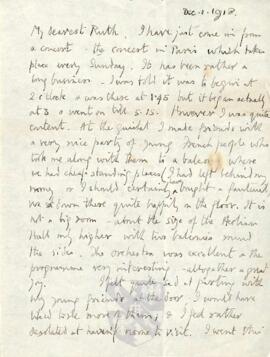 Dec. 1. 1918
My dearest Ruth. I have just come in from
a concert - the concert in Paris which takes
place every Sunday. It has been rather a
long business - I was told it was to begin at
2 o'clock & was there at 1.45 but it began actually
at 3 & went on till 5.15. However I was quite
content. At the guichet I made friends with
a very nice party of young French people who
took me along with them to a balcony where
we had cheap standing places (I had left behind my
money or I should certainly have bought a fauteuil)
We sat down there quite happily on the floor. It is
not a big room - about the size of the Aeolian
Hall only higher with two balconies round
the side. The orchestra was excellent & the
programme very interesting - altogether a great
joy. I felt quite sad at parting with
my young friends at the door. I would have
liked to see more of them; & I feel rather
desolated at having no one to visit. I went this